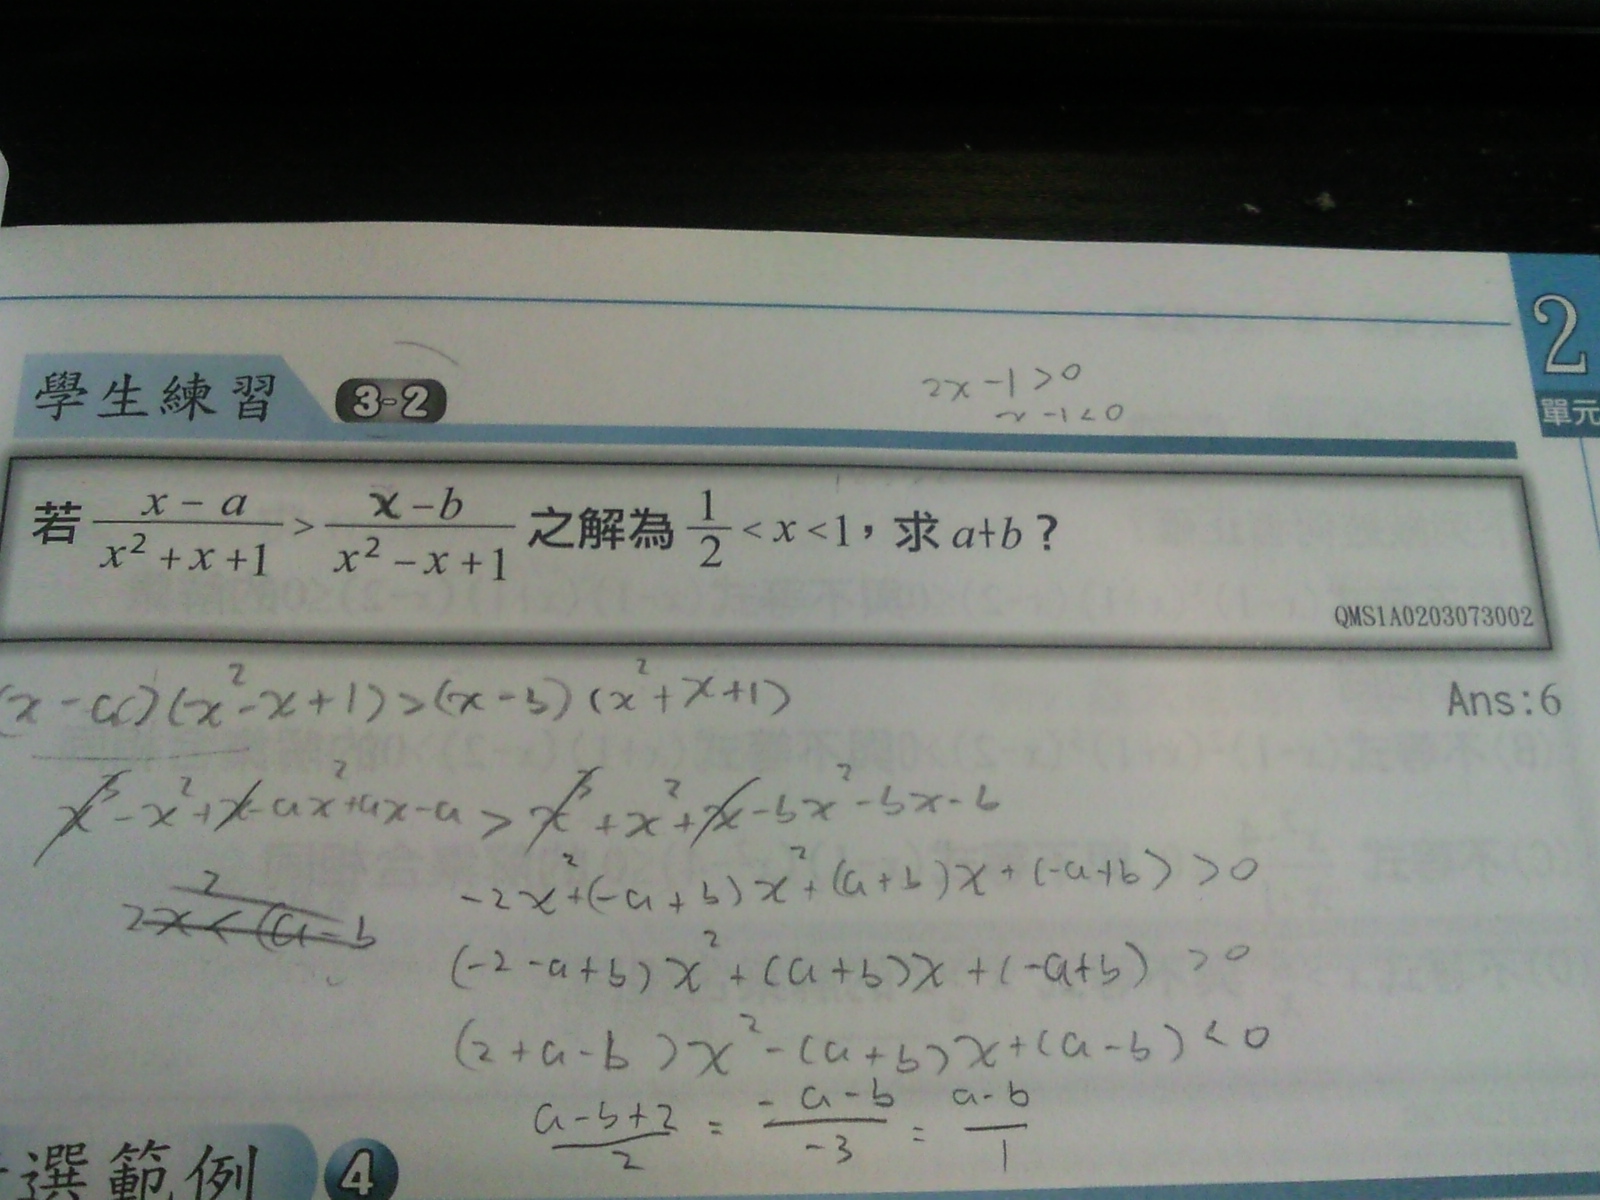 2
單元
學生練習 3-2
2x-1>0
x-1>0
若 (x-a)/(x²+x+1) > (x-b)/(x²-x+1) 之解為 1/2 < x < 1，求 a+b？
QMS1A0203073002
Ans:6
(x-a)(x²-x+1)>(x-b)(x²+x+1)
x³-x²+x-ax²+ax-a > x³+x²+x-bx²-bx-b
-2x²+(-a+b)x²+(a+b)x+(-a+b)>0
2x²<(a-b
(-2-a+b)x²+(a+b)x+(-a+b)>0
(2+a-b)x²-(a+b)x+(a-b)<0
(a-b+2)/2 = (-a-b)/-3 = (a-b)/1
選範例 4